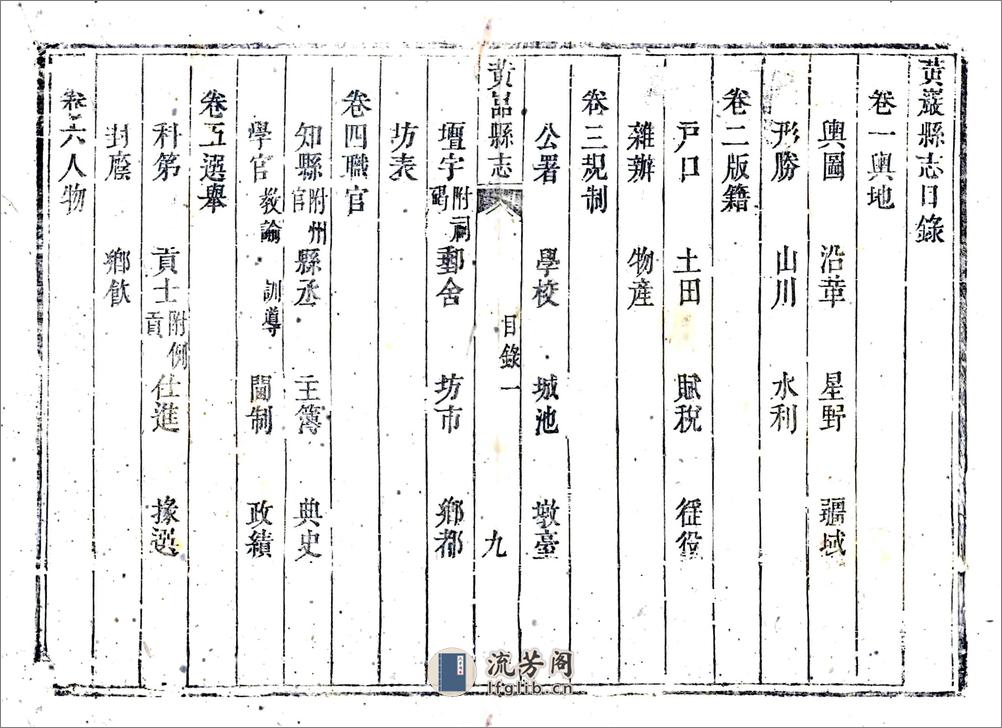 黄巖縣志目錄
卷一輿地
輿圖 沿革 星野 疆域
形勝 山川 水利
卷二版籍
戸口 土田 賦稅 徭役
雜辦 物産
卷三規制
公署 學校 城池 墩臺
黄嵒縣志 目錄一 九
壇宇 附祠碣 郵舍 坊市 鄉都
坊表
卷四職官
知縣 附州官 縣丞 主簿 典史
學官 教諭 訓導 閫制 政績
卷五選舉
科第 貢士 附例貢 仕進 掾選
封廕 鄉飲
卷六人物
流芳阁
lfglib.cn